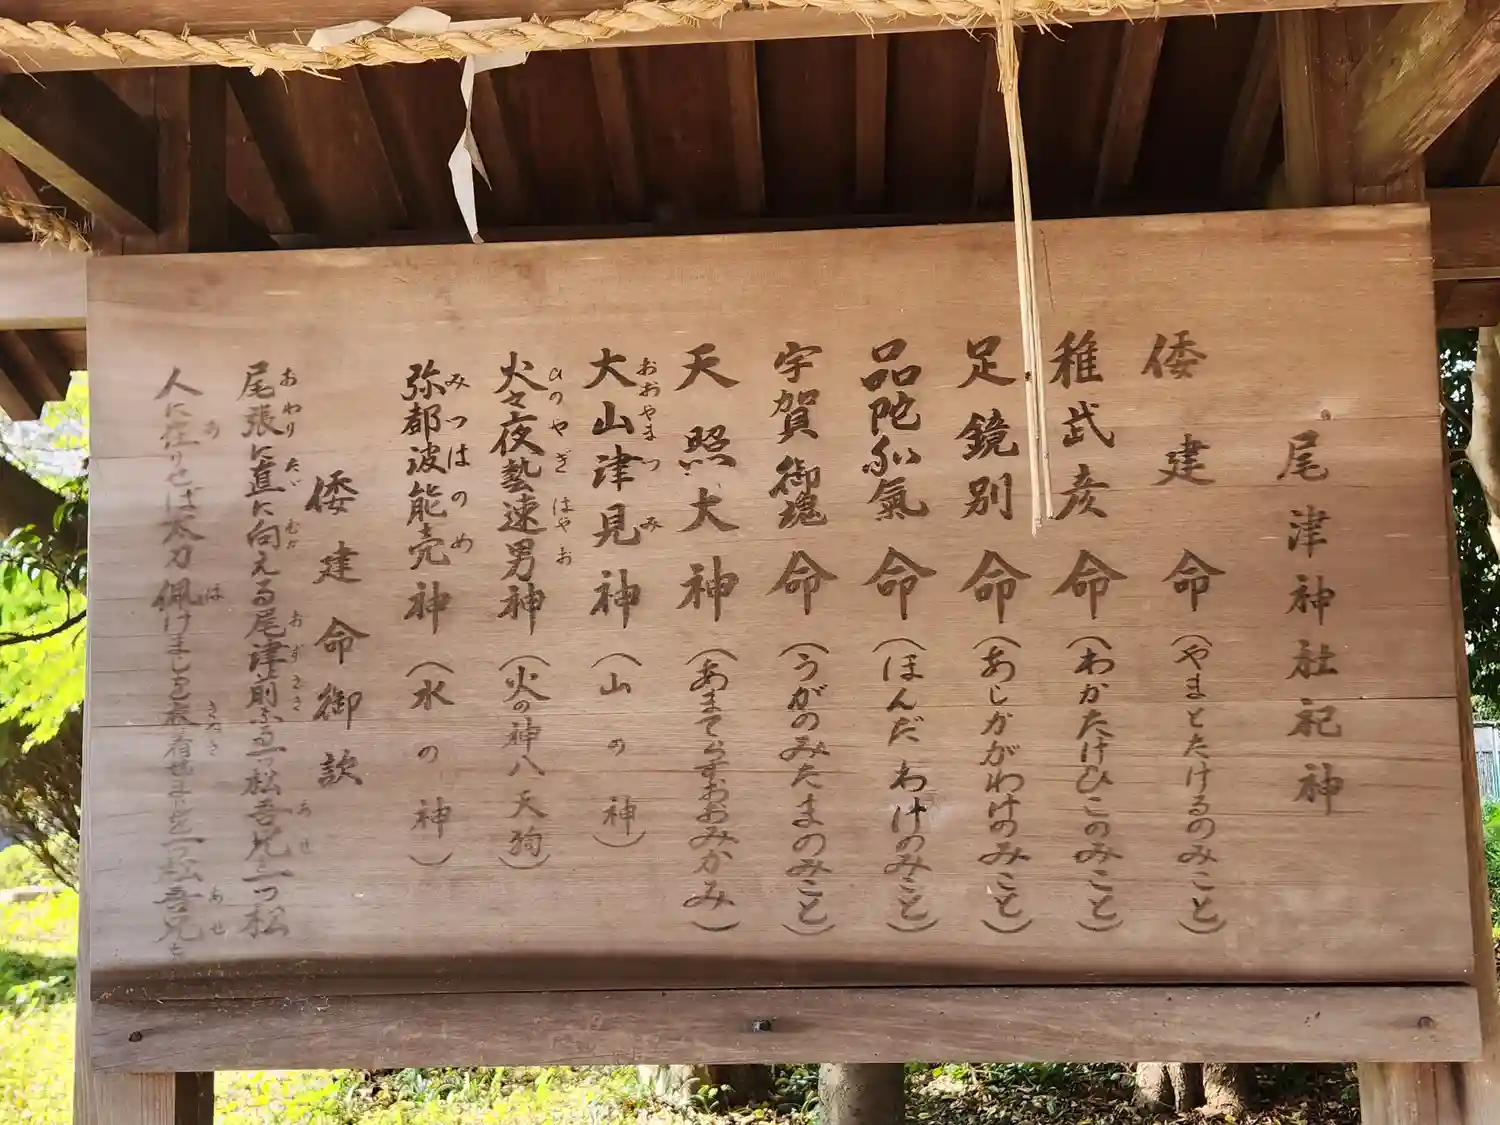 尾津神社祀神
倭建命(やまとたけるのみこと)
稚武彦命(わかたけひこのみこと)
足鏡別命(あしかがわけのみこと)
品陀和氣命(ほんだわけのみこと)
宇賀御魂命(うがのみたまのみこと)
天照大神(あまてらすおおみかみ)
おおやまつみ
大山津見神(山の神)
ひのやぎはやお
火々夜藝速男神(火の神八天狗)
みつはのめ
弥都波能売神(水の神)
倭建命御歌
おわりただむかおずさきあせ
尾張に直に向える尾津前なる一つ松吾兄一つ松
あはきぬきあせ
人に在りせば太刀佩けましを衣着せましを一つ松吾兄を